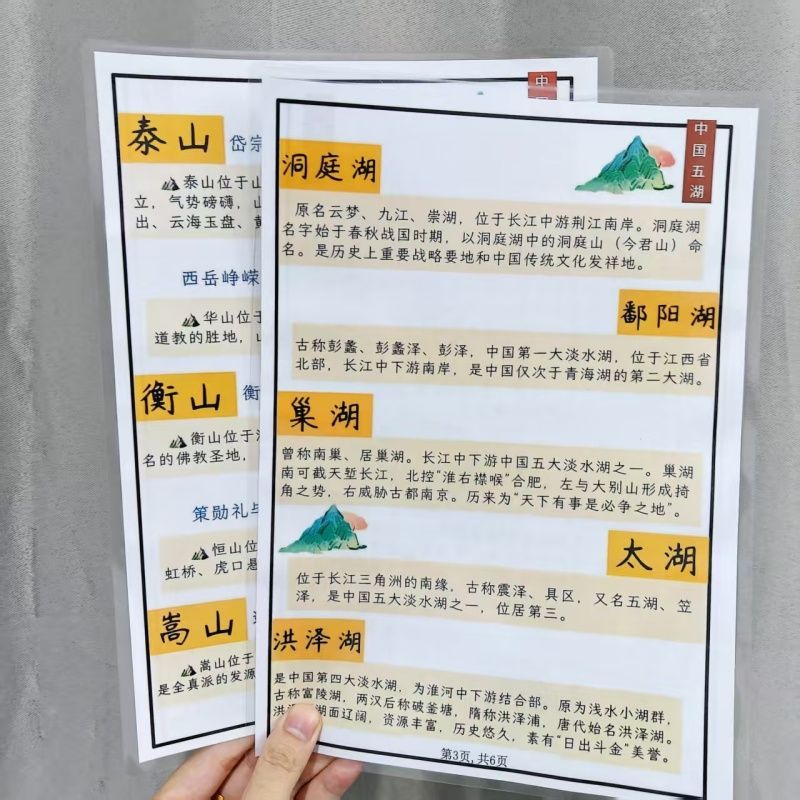 泰山
岱宗
泰山位于
立，气势磅礴，
出、云海玉盘、
西岳峥嵘
华山位于
道教的胜地，
衡山
衡山位于
名的佛教圣地，
策勋礼
恒山位
虹桥、虎口悬
嵩山
嵩山位于
是全真派的发源
中
中国五湖
洞庭湖
原名云梦、九江、崇湖，位于长江中游荆江南岸。洞庭湖
名字始于春秋战国时期，以洞庭湖中的洞庭山（今君山）命
名。是历史上重要战略要地和中国传统文化发祥地。
鄱阳湖
古称彭蠡、彭蠡泽、彭泽，中国第一大淡水湖，位于江西省
北部，长江中下游南岸，是中国仅次于青海湖的第二大湖。
巢湖
曾称南巢、居巢湖。长江中下游中国五大淡水湖之一。巢湖
南可截天堑长江，北控“淮右襟喉”合肥，左与大别山形成掎
角之势，右威胁古都南京。历来为“天下有事是必争之地”。
太湖
位于长江三角洲的南缘，古称震泽、具区，又名五湖、笠
泽，是中国五大淡水湖之一，位居第三。
洪泽湖
是中国第四大淡水湖，为淮河中下游结合部。原为浅水小湖群，
古称富陵湖，两汉后称破釜塘，隋称洪泽浦，唐代始名洪泽湖。
洪湖面辽阔，资源丰富，历史悠久，素有“日出斗金”美誉。
第3页,共6页